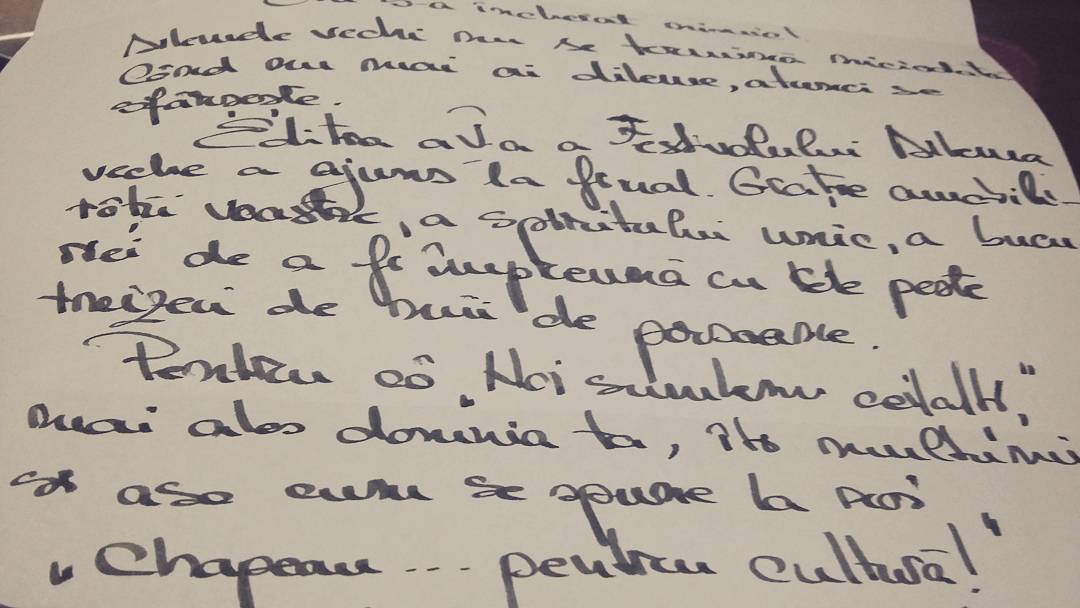 s-a încheiat
Dilemele vechi nu se termină niciodată
Când nu mai ai dileme, atunci se
sfârșește.
Ediția a V a a Festivalului Dilema
veche a ajuns la final. Grație amabili-
tății voastre, a spiritului unic, a bucu
riei de a fi împreună cu cele peste
treizeci de mii de persoane.
Pentru că „Noi suntem ceilalți",
mai ales domnia ta, îți mulțumim
și așa cum se spune la noi
„Chapeau ... pentru cultură!"